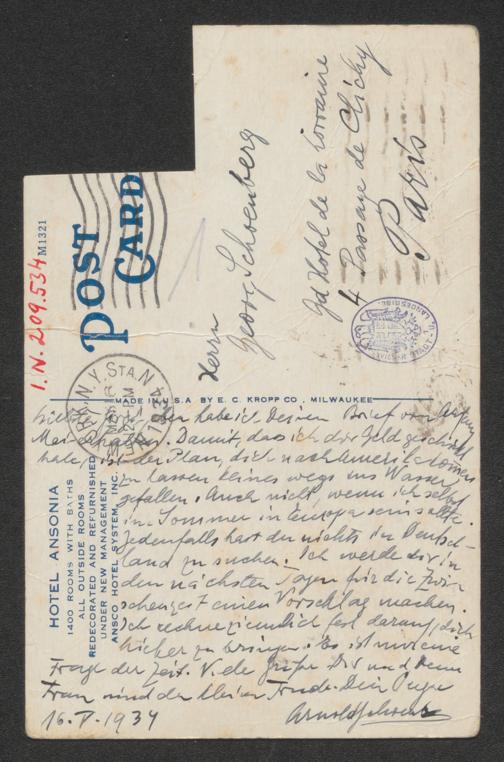 POST
CARD
M1321
I.N. 209.534
Herrn
Georg Schoenberg
Gd Hotel de la Lorraine
4 Passage de Clichy
Paris
MADE IN U.S.A. BY E. C. KROPP CO., MILWAUKEE
N.Y. STA. N
1934
HOTEL ANSONIA
1400 ROOMS WITH BATHS
ALL OUTSIDE ROOMS
REDECORATED AND REFURNISHED
UNDER NEW MANAGEMENT
ANSCO HOTEL SYSTEM, INC.
habe ich Deinen Brief von Anfang
Mai erhalten. Damit, dass ich das Geld geschickt
habe, ist der Plan, dich nach Amerika kommen
zu lassen keines wegs ins Wasser
gefallen. Auch nicht, wenn ich selbst
im Sommer in Europa sein sollte.
Jedenfalls hast du nichts in Deutsch-
land zu suchen. Ich werde dir in
den nächsten Tagen für die Zwi-
schenzeit einen Vorschlag machen.
Ich rechne ziemlich fest darauf, dich
hieher zu bringen. Es ist nur eine
Frage der Zeit. Viele Grüße Dir und Deiner
Frau und der kleinen Dein Papa
16.V.1934 Arnold Schoenberg